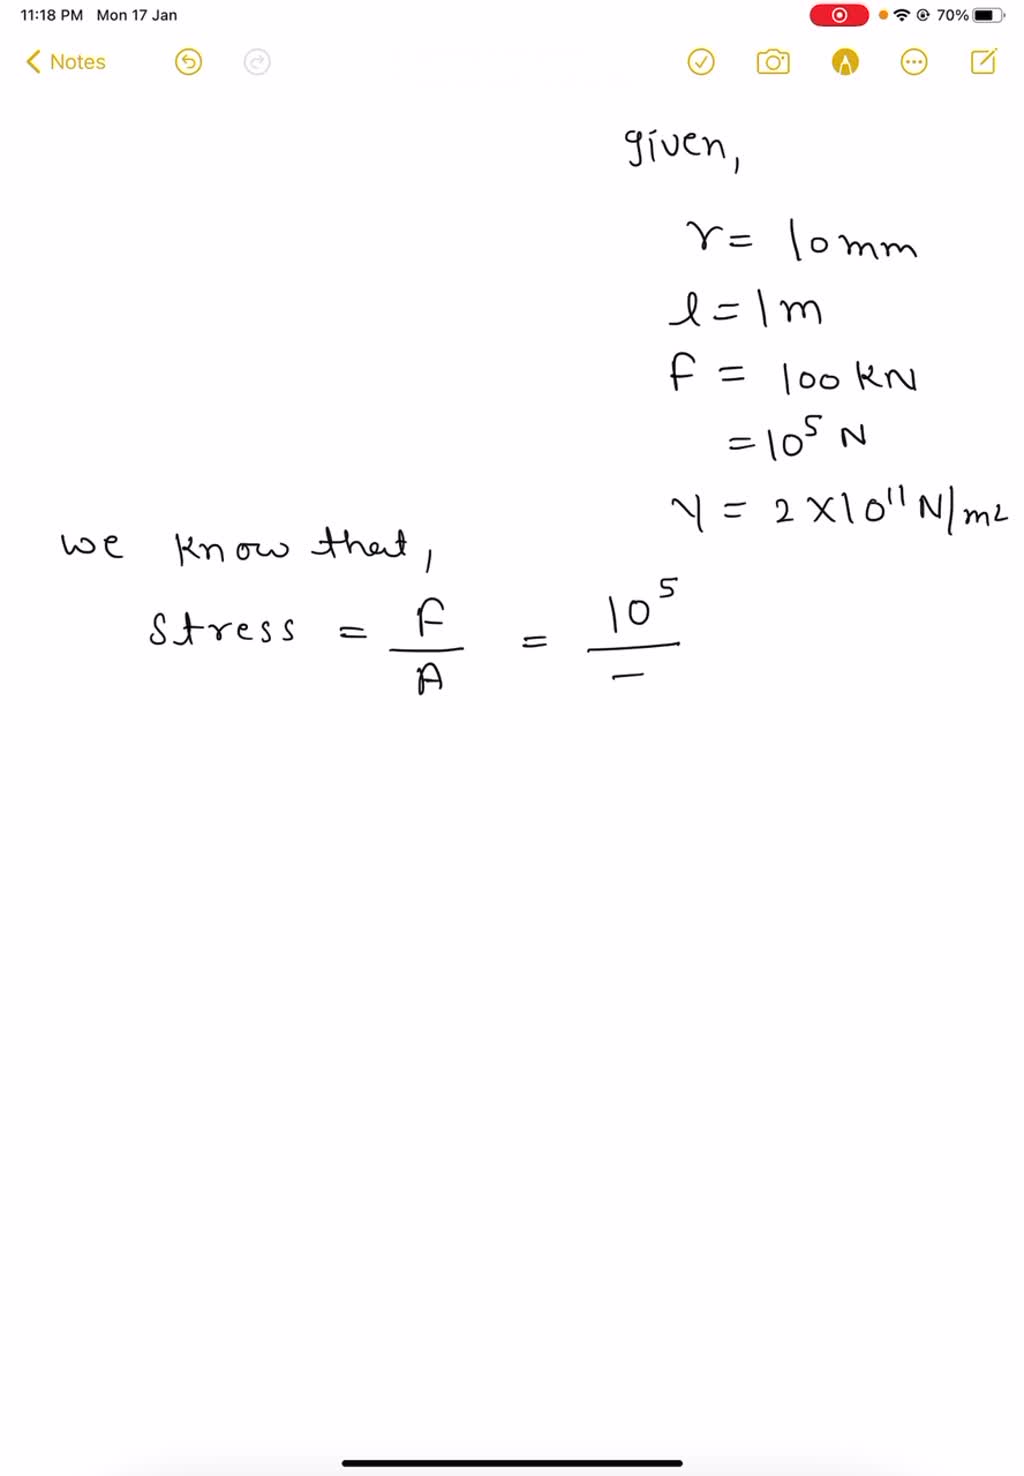 11:18 PM Mon 17 Jan 70%
Notes
given,
r = 10mm
l = 1m
F = 100 KN
= 10⁵ N
Y = 2 X 10¹¹ N/m2
we know that,
Stress = F/A = 10⁵/–